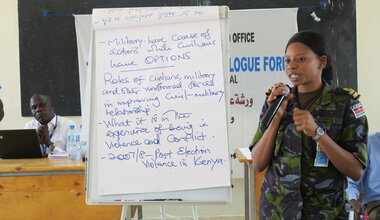 - Military have cause of
actions while civilians
have OPTIONS.
- Roles of civilians, military
and other uniformed forces
in improving Civil-military
relationship.
- What it is in the
experience of being in
violence and conflict.
- 2007/8 - Post Election
Violence in Kenya.
D OFFICE
LOGUE FORU
AL